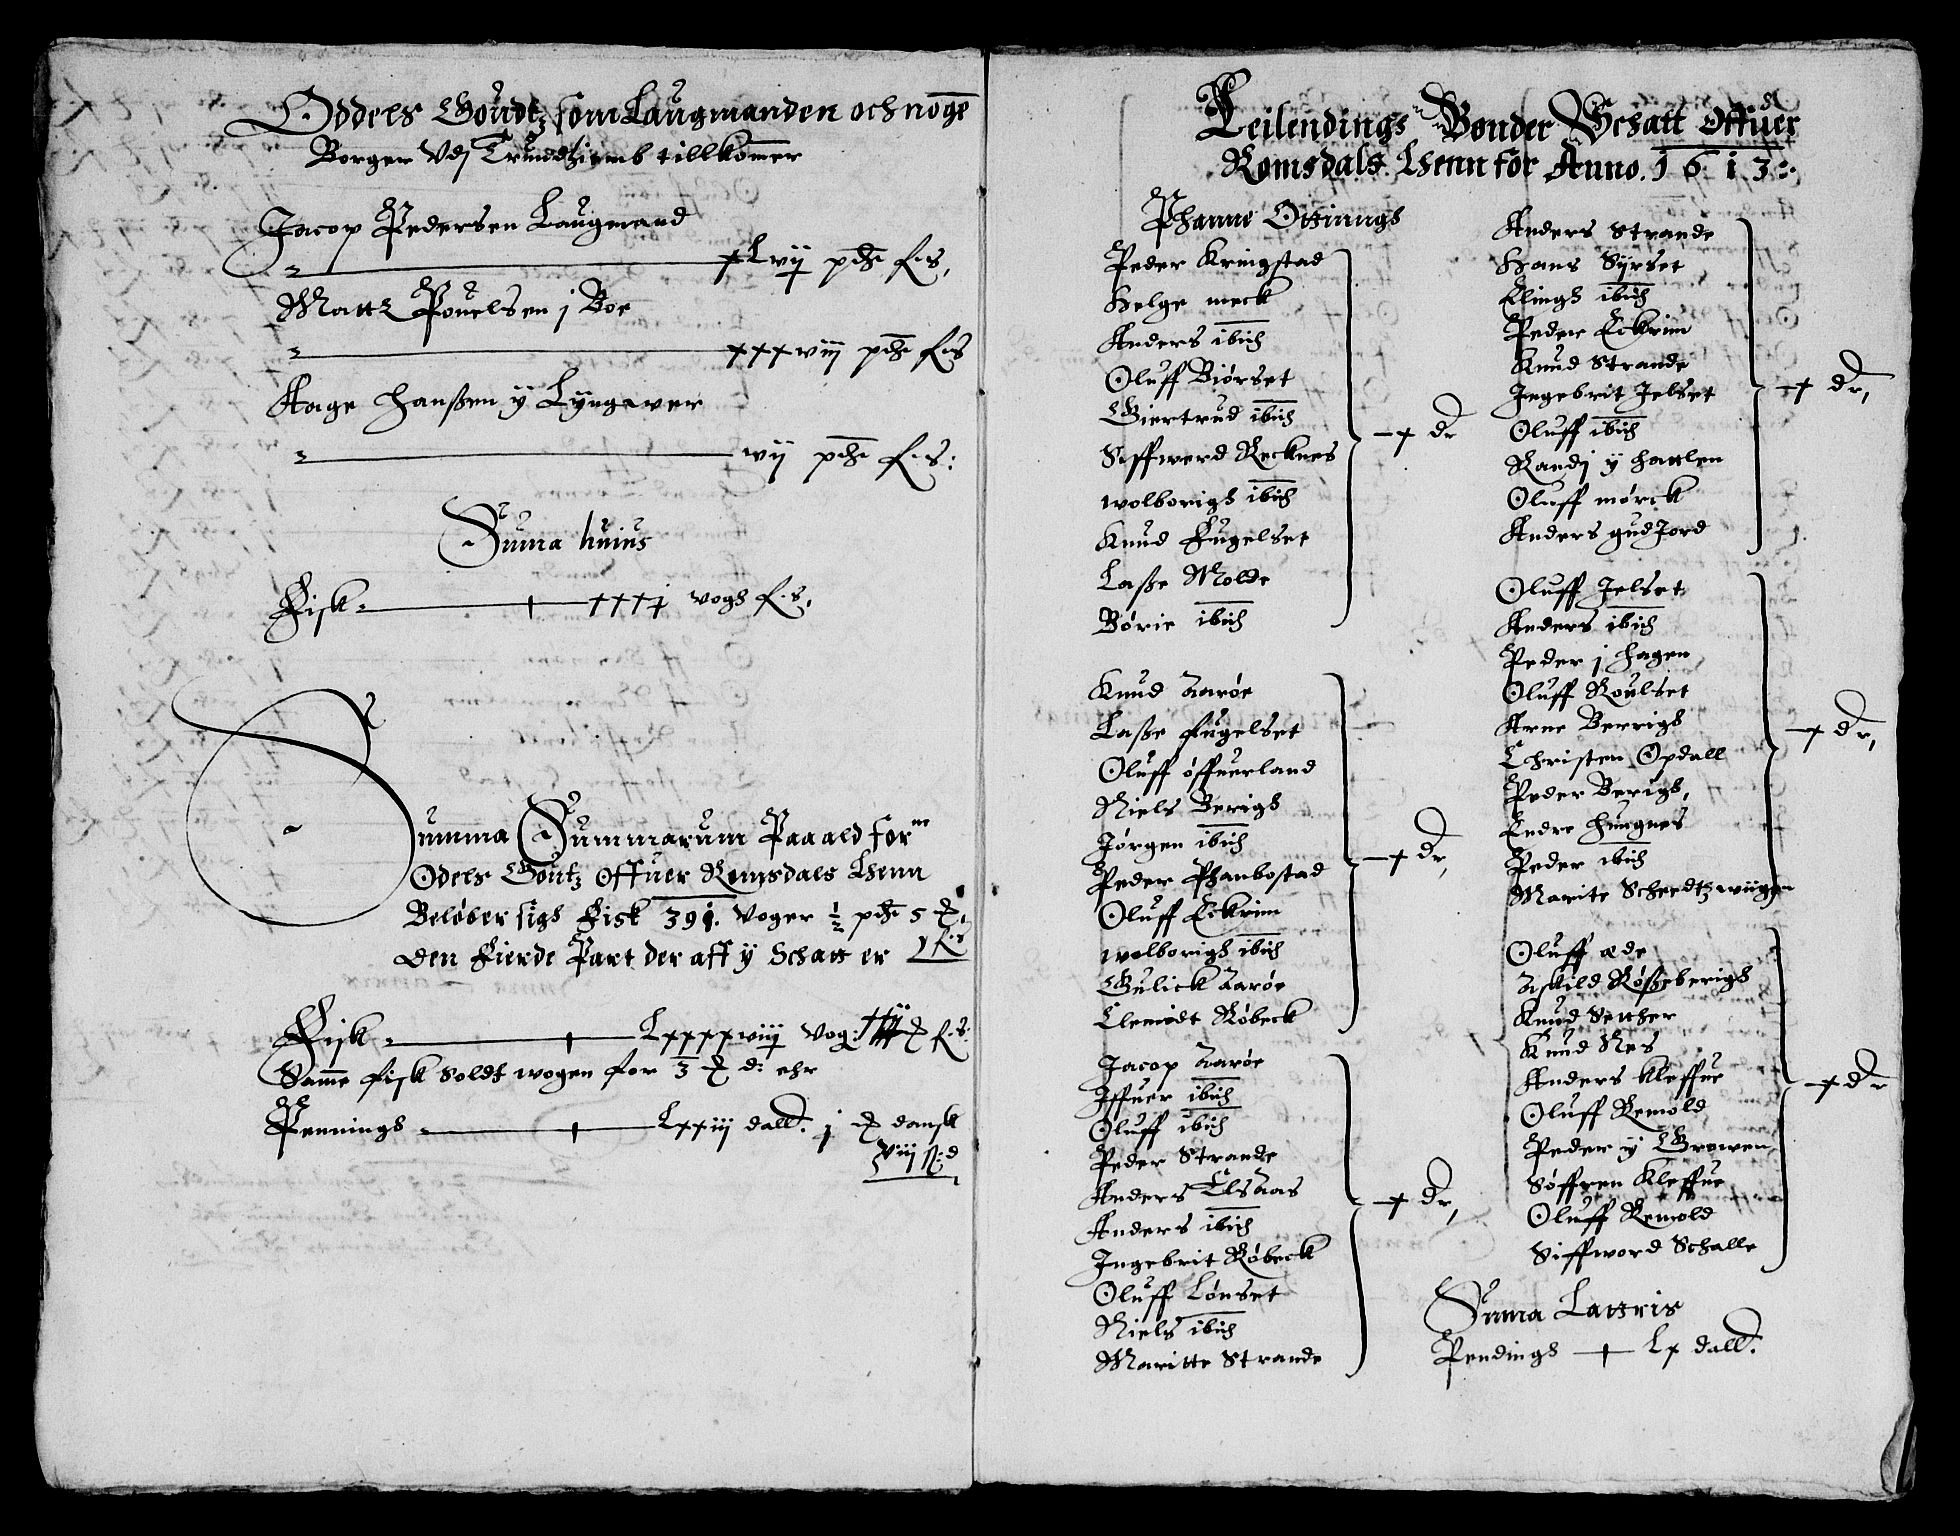 Oddels Goudtz som Laugmanden och nogē
Borger Vdj Trundhiemb tillkomer
Jacop Pedersen Laugmand
xLvij pd fis,
Mattz Pouelsen j Boe
xxxviij pd fis
Aage Hanßen y Lyngwer
vij pd fis:
Suma huius
Fisk xxxxj vogh fis,
Summa Summarum Paa ald for
Odels Goutz offuer Romsdals Lhenn
Beløber sigh Fisk 391. Voger ½ pd 5 ℔,
Den Fierde Part der aff y Schatt er fis
Fisk Lxxxxviij Vog: fis:
Samē fisk Soldt wogen for 3 d: ehr
Pennings Lxxiij dall. j dansk
viij ß d
Leilendings Bønder Schatt offuer
Romsdals Lhenn for Anno. 1613:
Phanne Ottings
Peder Kringstad
Helge meck
Anders ibid
Oluff Biørset
Giertrud ibid
Siffwerd Recknes
wolborigh ibid
Knud Fugelset
Laße Molde
Børie ibid
x dr
Knud Aarøe
Laße fugelset
Oluff øffuerland
Niels Berigh
Jørgen ibid
Peder Phanbostad
Oluff Eckrim
wolborigh ibid
Gulick Aarøe
Clemidt Røbeck
x dr,
Jacop Aarøe
Iffuer ibid
Oluff ibid
Peder Strande
Anders ElsAas
Anders ibid
Ingebrit Røbeck
Oluff Lønset
Niels ibid
Maritte Strande
x dr,
Anders Strande
Hans Syrset
Elingh ibid
Peder Eckrim
Knud Strande
Ingebrit Jelset
Oluff ibid
Randj y Hatlen
Oluff mørck
Anders gudJord
x dr,
Oluff Jelset
Anders ibid
Peder j Hagen
Oluff Roulset
Arne Berrigh
Christen Opdall
Peder Berigh,
Endre Hungnes
Peder ibid
Marite Scheedtzwiigen
x dr,
Oluff æde
Askild Røßeberigh
Knud Setther
Knud Nes
Anders Kleffue
Oluff Remold
Peder y Growen
Søffren Kleffue
Oluff Remold
Siffword Schalle
x dr
Suma Latteris
Pendingh Lx dall.